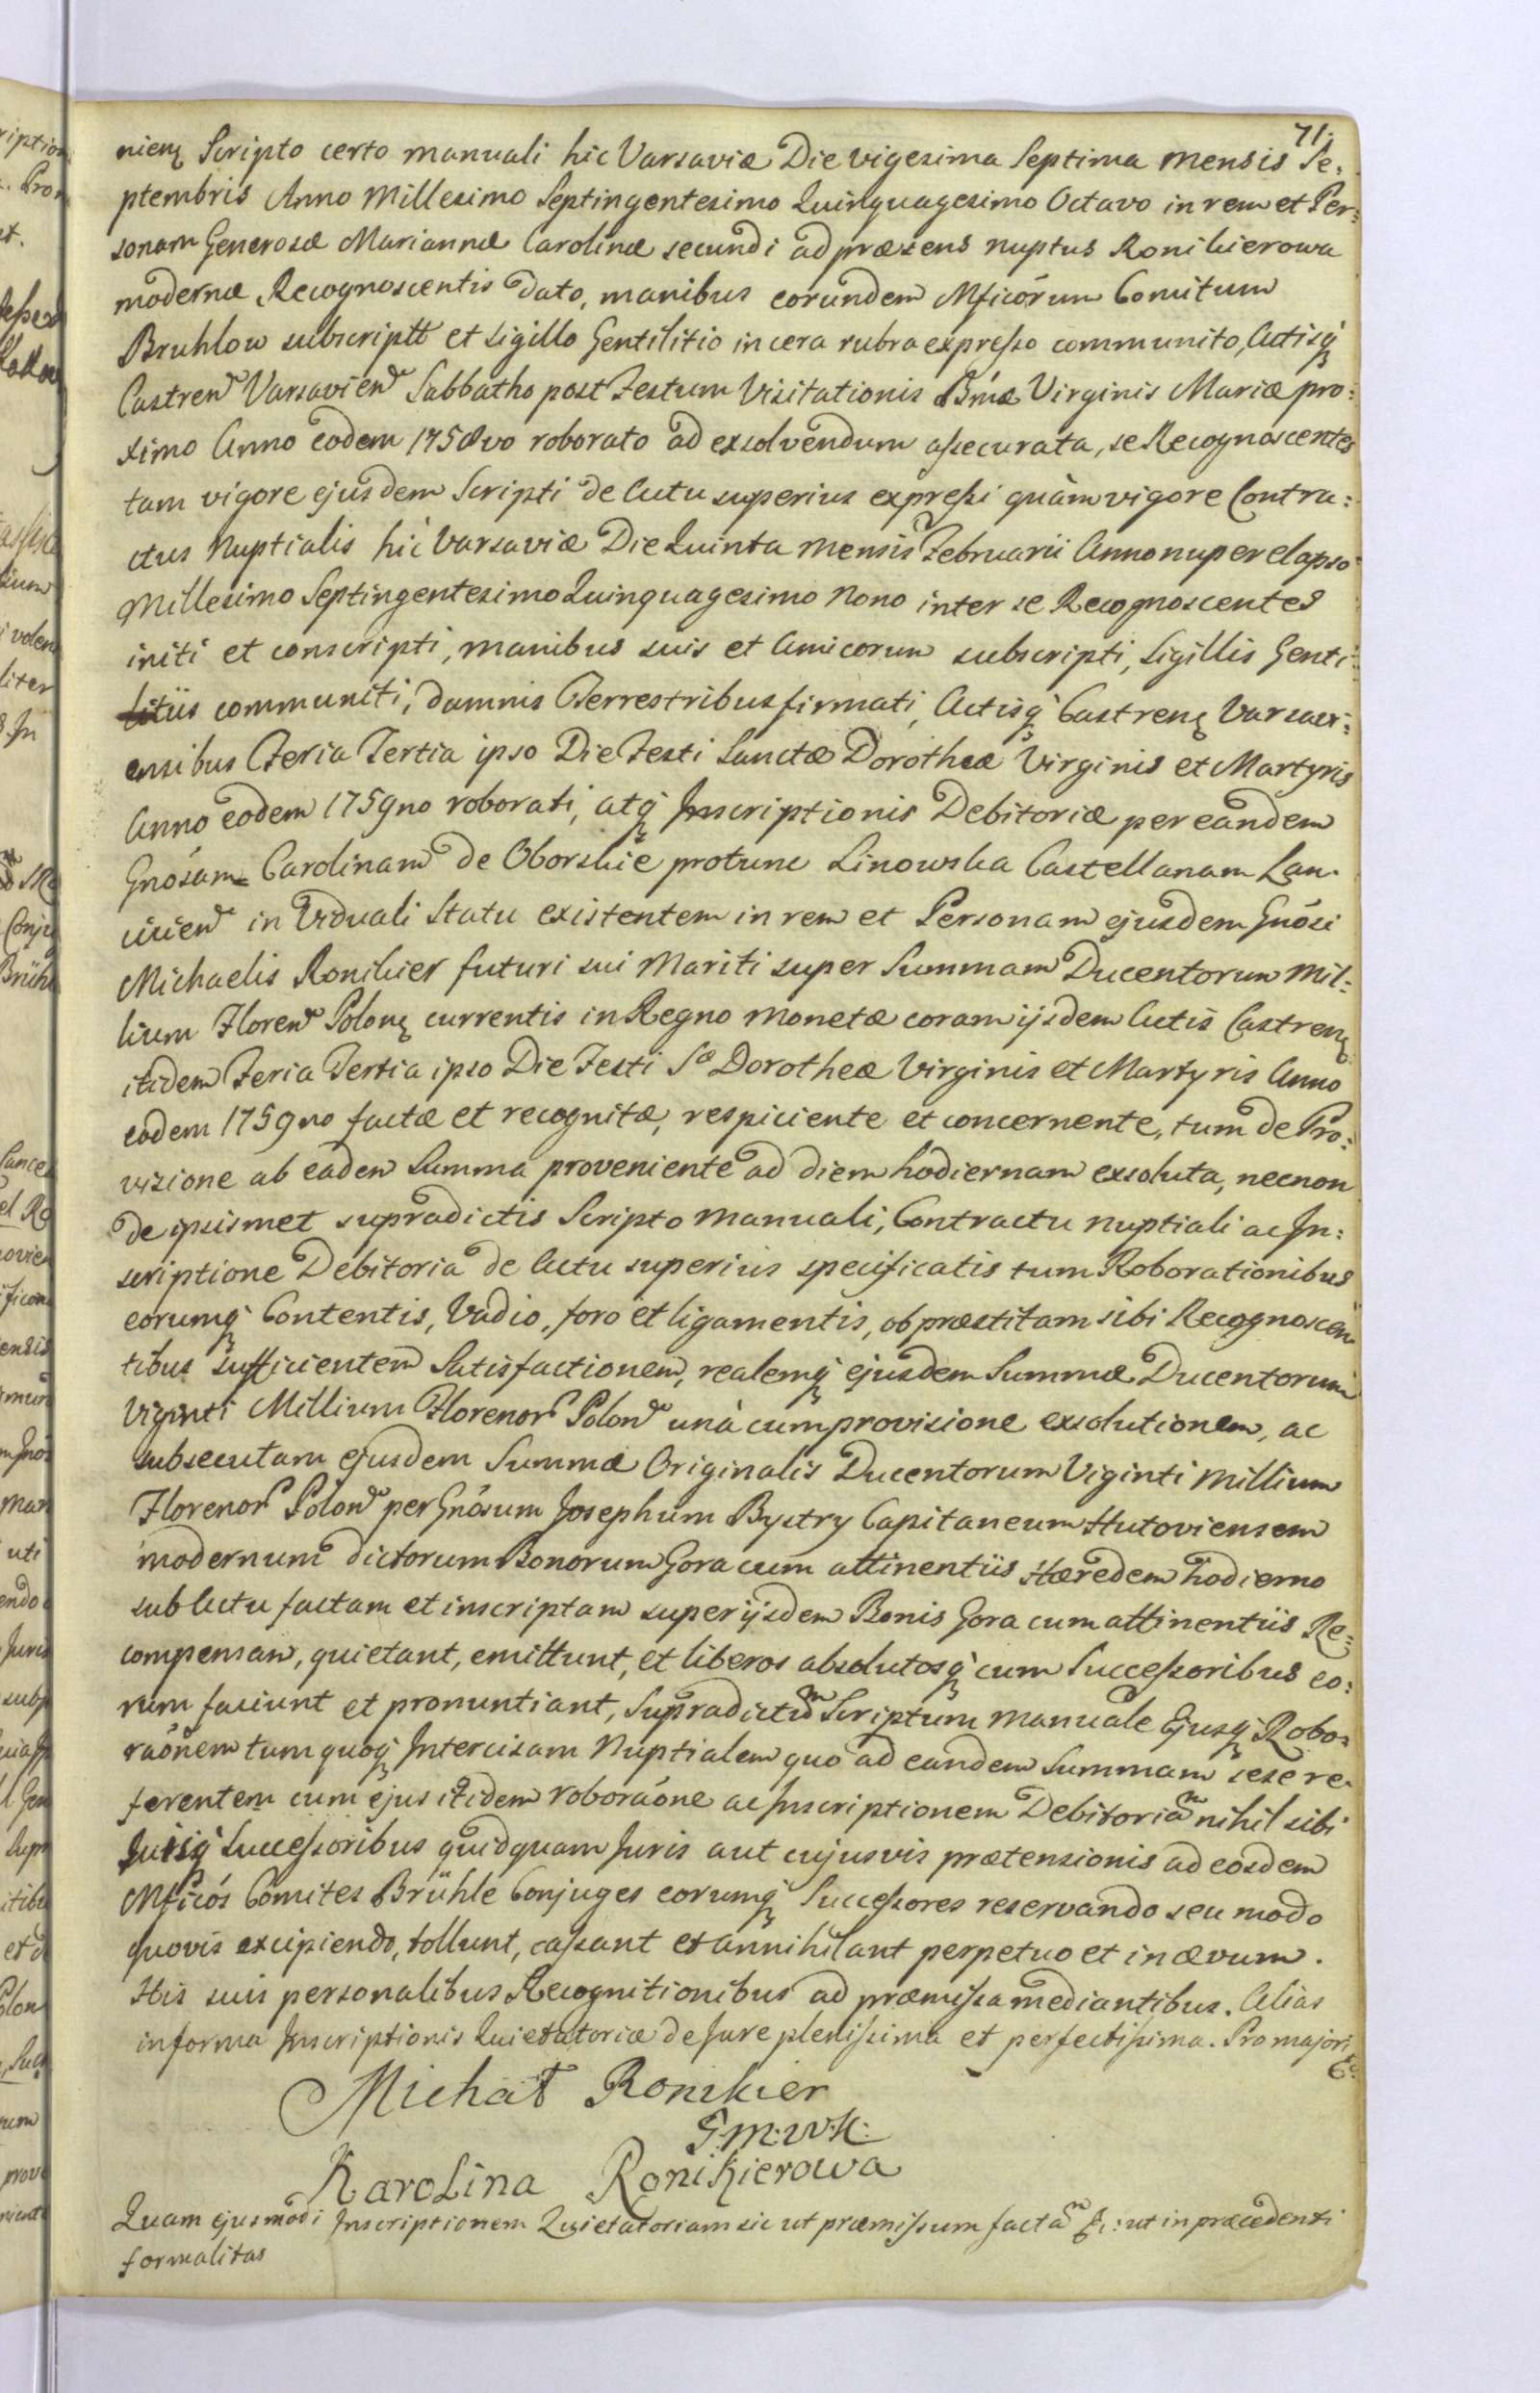 71.
nienʒ Scripto certo manuali hic Varsaviæ Die vigesima Septima mensis Se:
ptembris Anno Millesimo Septingentesimo Quinquagesimo Octavo in rem et Per:
sonam Generosæ Mariannæ Carolinæ secundi ad præsens nuptus Ronikierowa
modernæ Recognoscentis dato, manibus eorundem Mficórum Comitum
Bruhlow subscriptt et sigillo Gentilitio in cera rubra expresso communito, Actisq́
Castren Varsavien Sabbatho post Festum Visitationis Bmæ Virginis Mariæ pro:
ximo Anno eodem 1758vo roborato ad exsolvendum assecurata, se Recognoscentes
tam vigore ejusdem Scripti de Actu superius expressi quàm vigore Contra:
ctus Nuptialis hic Varsaviæ Die Quinta Mensis Februarii Anno nuper elapso
Millesimo Septingentesimo Quinquagesimo Nono inter se Recognoscentes
initi et conscripti, manibus suis et Amicorum subscripti, Sigillis Genti:
litiis communiti, damnis Terrestribus firmati, Actisq́ Castrenʒ Varsavi:
ensibus Feria Tertia ipso Die Festi Sanctæ Dorotheæ Virginis et Martyris
Anno eodem 1759no roborati, atq́ Inscriptionis Debitoriæ per eandem
Gnósam Carolinam de Oborskie protunc Linowska Castellanam Lan-
cicien in Viduali Statu existentem in rem et Personam ejusdem Gnósi
Michaelis Ronikier futuri sui Mariti super Summam Ducentorum Mil:
lium Floren Polonʒ currentis in Regno Monetæ coram ijsdem Actis Castrenʒ
itidem Feria Tertia ipso Die Festi Sæ Dorotheæ Virginis et Martyris Anno
eodem 1759no factæ et recognitæ, respiciente et concernente, tum de Pro:
visione ab eadem Summa proveniente ad diem hodiernam exsoluta, necnon
de ipsismet supradictis Scripto manuali, Contractu nuptiali ac In:
scriptione Debitoria de Actu superius specificatis tum Roborationibus
eorumq́ Contentis, Vadio, foro et ligamentis, ob præstitam sibi Recognoscen
tibus sufficientem Satisfactionem, realemq́ ejusdem Summæ Ducentorum
Viginti Millium Florenor Polon unà cum provisione exsolutionem, ac
subsecutam ejusdem Summæ Originalis Ducentorum Viginti Millium
Florenor Polon per Gnósum Josephum Bystry Capitaneum Hutoviensem
modernum dictorum Bonorum Gora cum attinentiis Hæredem hodierno
sub Actu factam et inscriptam super ijsdem Bonis Gora cum attinentiis Re:
compensam, quietant, emittunt, et liberos absolutosq́ cum Successoribus eo:
rum faciunt et pronuntiant, Supradictum Scriptum manuale Ejusq́ Robo:
raónem tum quoq́ Intercisam Nuptialem quo ad eandem Summam sese re-
ferentem cum ejus itidem roboraóne ac Inscriptionem Debitoriam nihil sibi
suisq́ Successoribus quidquam Juris aut cujusvis prætensionis ad eosdem
Mficós Comites Brühle Conjuges eorumq́ Successores reservando seu modo
quovis excipiendo, tollunt, cassant et annihilant perpetuo et in ævum.
His suis personalibus Recognitionibus ad præmissa mediantibus. Alias
in forma Inscriptionis Quietatoriæ de Jure plenissima et perfectissima. Pro majori
&c
Michał Ronikier
G:M:W:K:
Karolina Ronikierowa
Quam ejusmodi Inscriptionem Quietatoriam sic ut præmissum factam &c: ut in præcedenti
formalitas